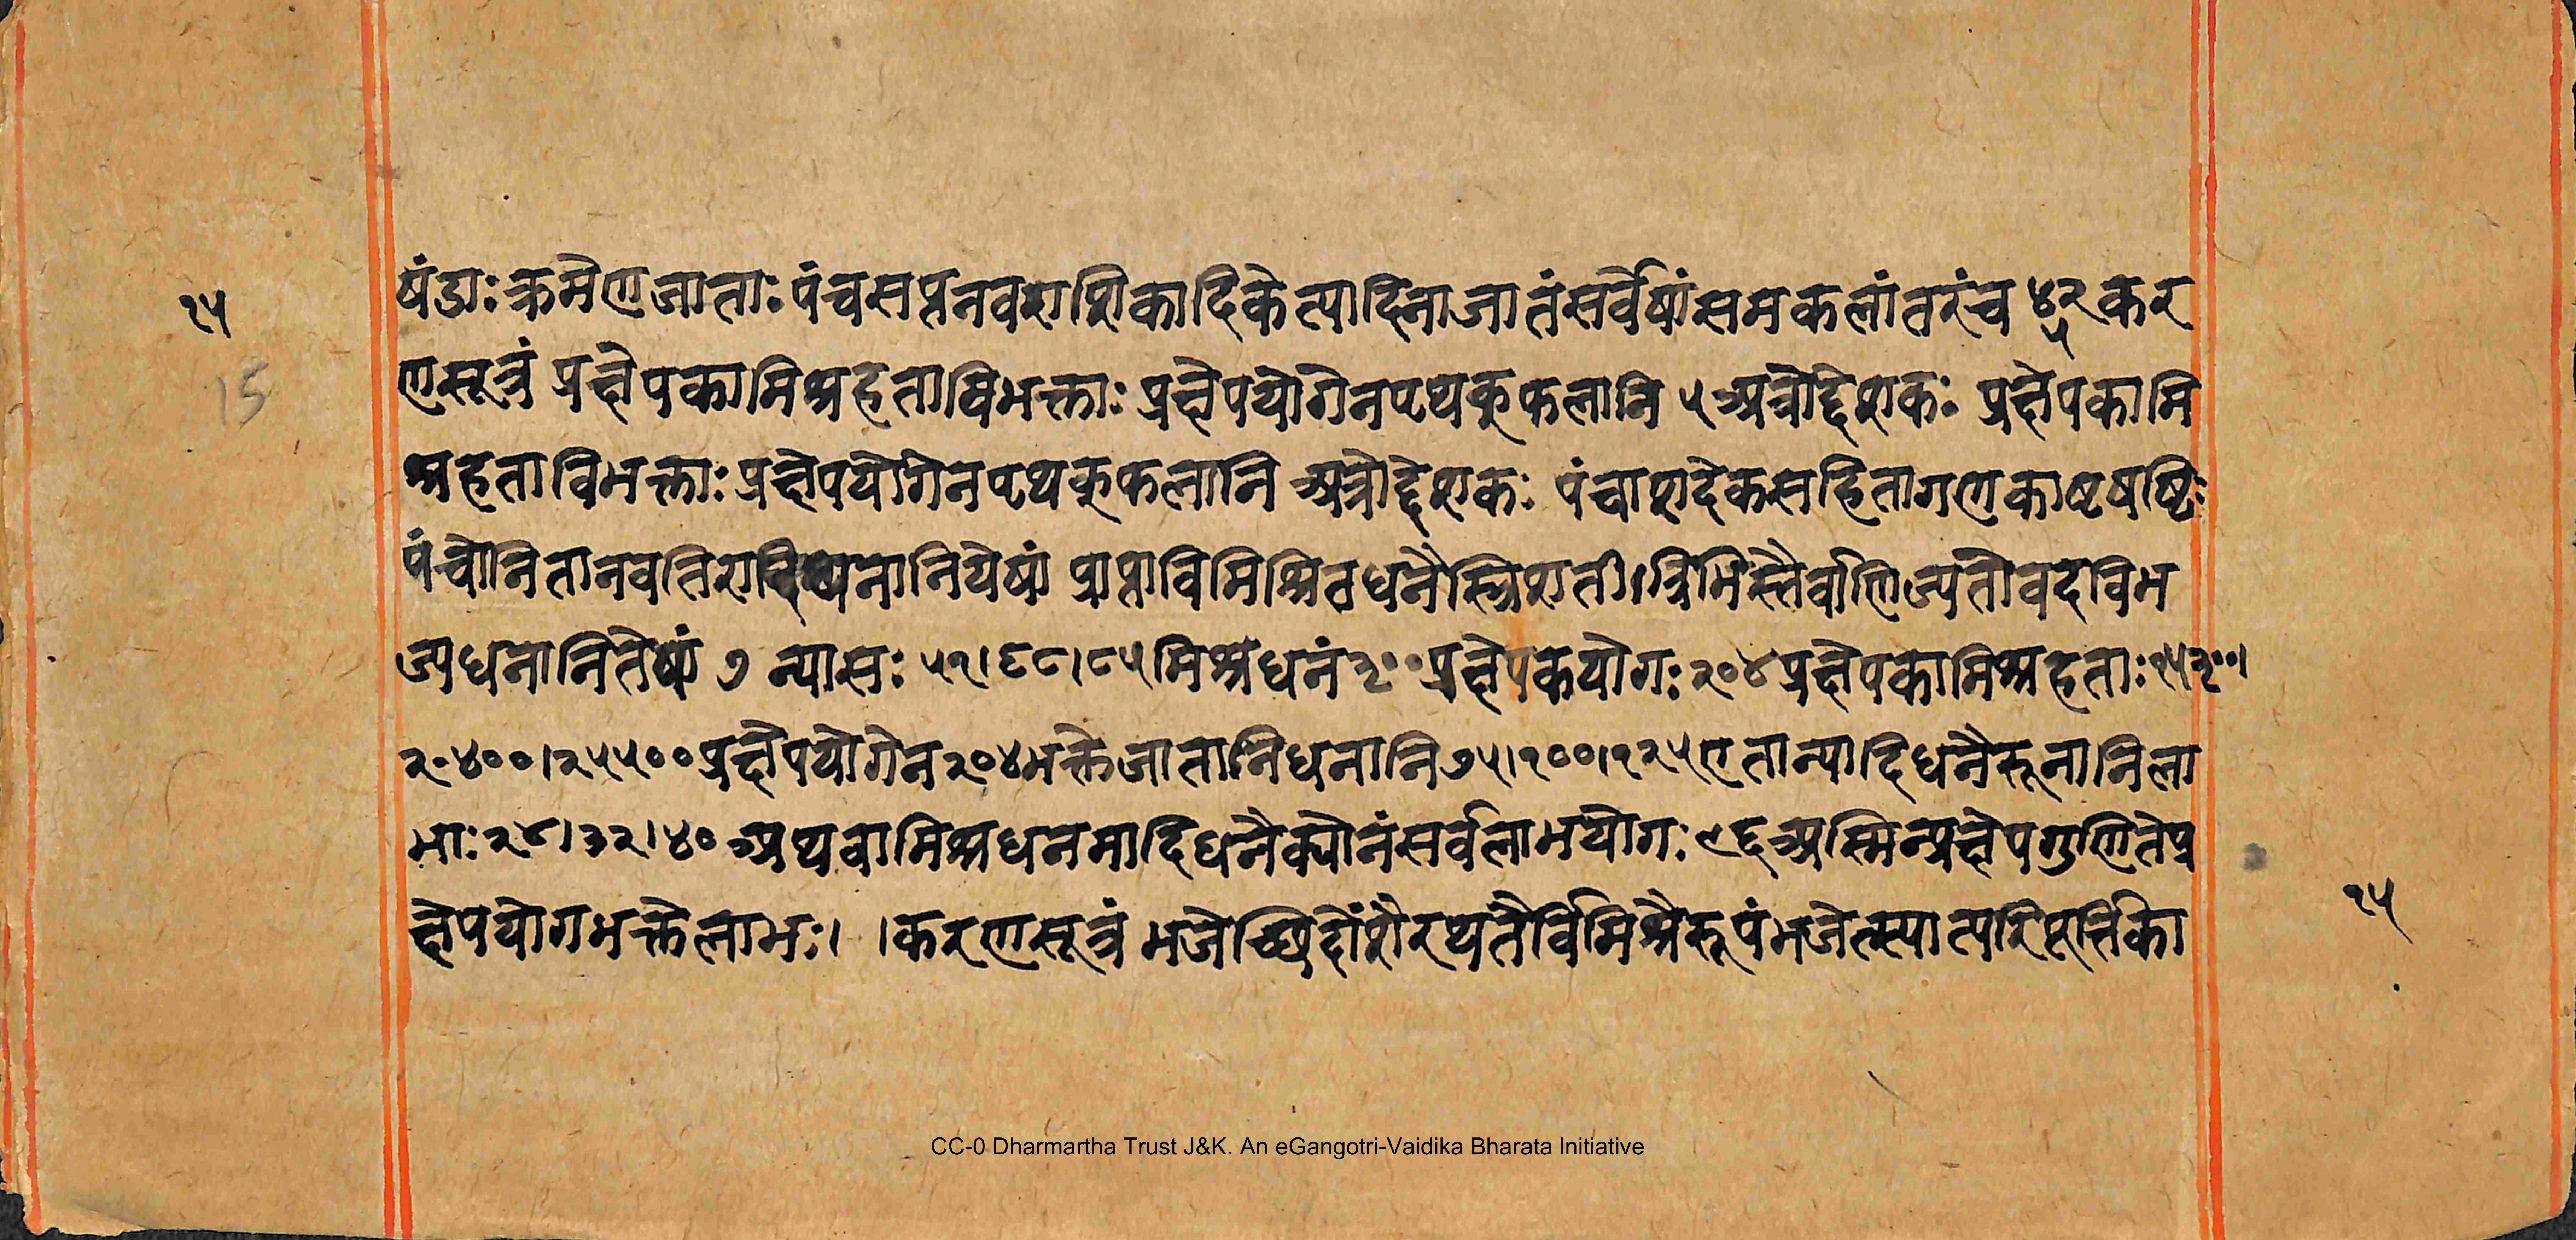 १५
15
षंडाः क्रमेण जाताः पंचसप्तनवराशिकादिकेत्यादिना जातं सर्वेषां समकलांतरं च ४२ कर
५
णसूत्रं प्रक्षेपका मिश्रहता विभक्ताः प्रक्षेपयोगेन पृथक् फलानि ५ अत्रोद्देशकः प्रक्षेपका मि
श्रहता विभक्ताः प्रक्षेपयोगेन पृथक् फलानि अत्रोद्देशकः पंचाशदेकसहिता गणकाष्टषष्टिः
पंचोनिता नवतिरादिधनानि येषां प्राप्ता विमिश्रितधनैस्त्रिशती। त्रिभिस्तैर्वाणिज्यतो वद विभ
ज्य धनानि तेषां ७ न्यासः ५१।६८।८५ मिश्रधनं ३०० प्रक्षेपकयोगः २०४ प्रक्षेपका मिश्रहताः १५३००।
२०४००।२५५०० प्रक्षेपयोगेन २०४ भक्ते जातानि धनानि ७५।१००।१२५ एतान्यादिधनैरूनानि ला
भाः २४।३२।४० अथवा मिश्रधनमादिधनैक्योनं सर्वलाभयोगः ९६ अस्मिन्प्रक्षेपगुणिते प्र
क्षेपयोगभक्ते लाभः। ।करणसूत्रं भजेच्छिदोंशैरथ तैर्विमिश्रै रूपं भजेत्स्यात्परिपूर्त्तिका
१५
CC-0 Dharmartha Trust J&K. An eGangotri-Vaidika Bharata Initiative